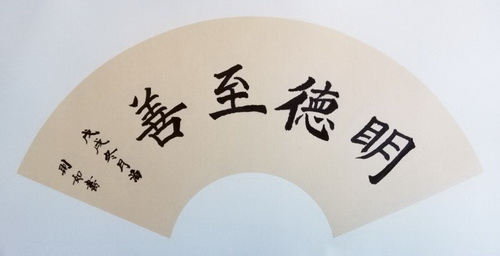 明德至善
戊戌冬月
如